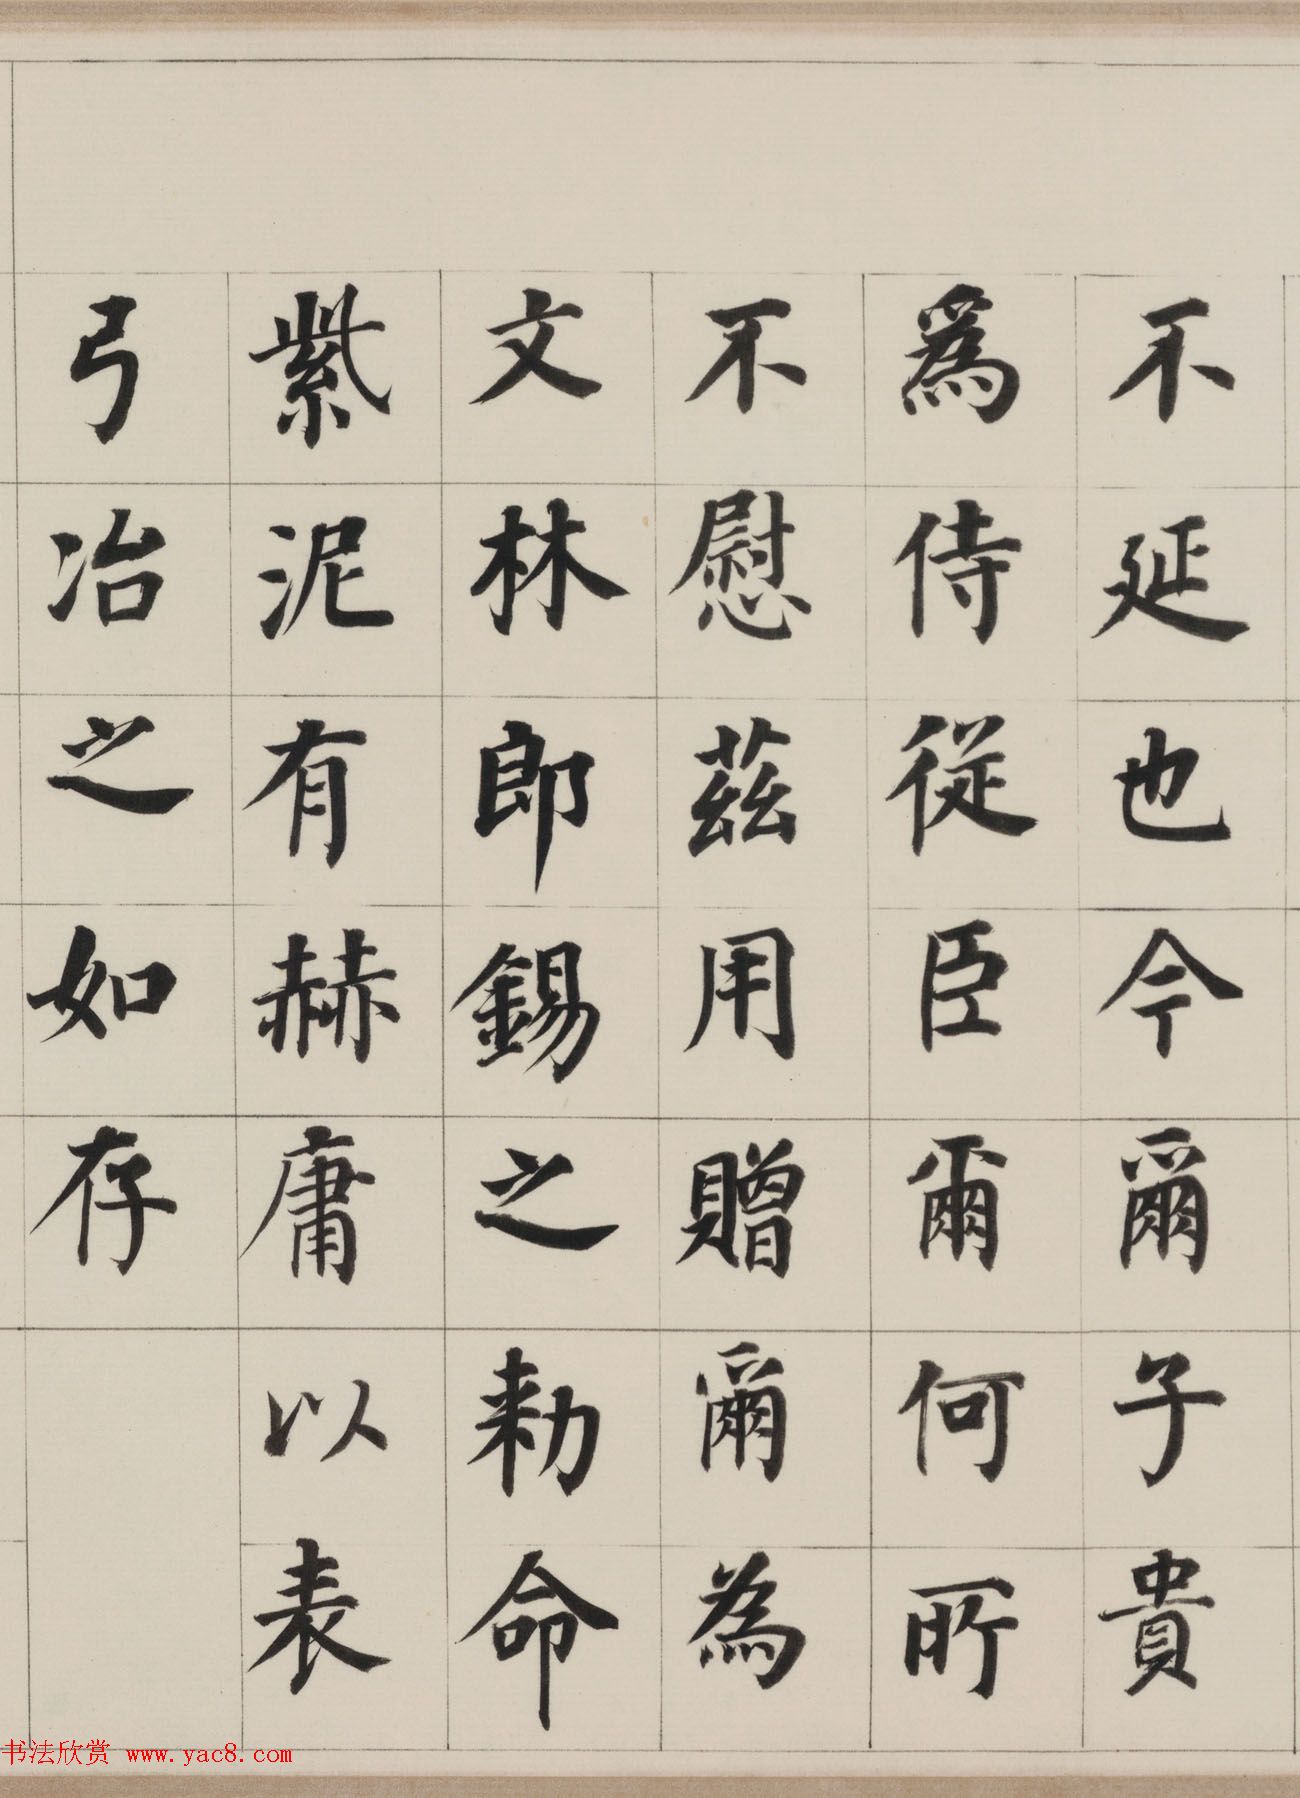 不延也今爾子貴
為侍從臣爾何所
不慰茲用贈爾為
文林郎錫之勅命
紫泥有赫庸以表
弓冶之如存
书法欣赏 www.yac8.com